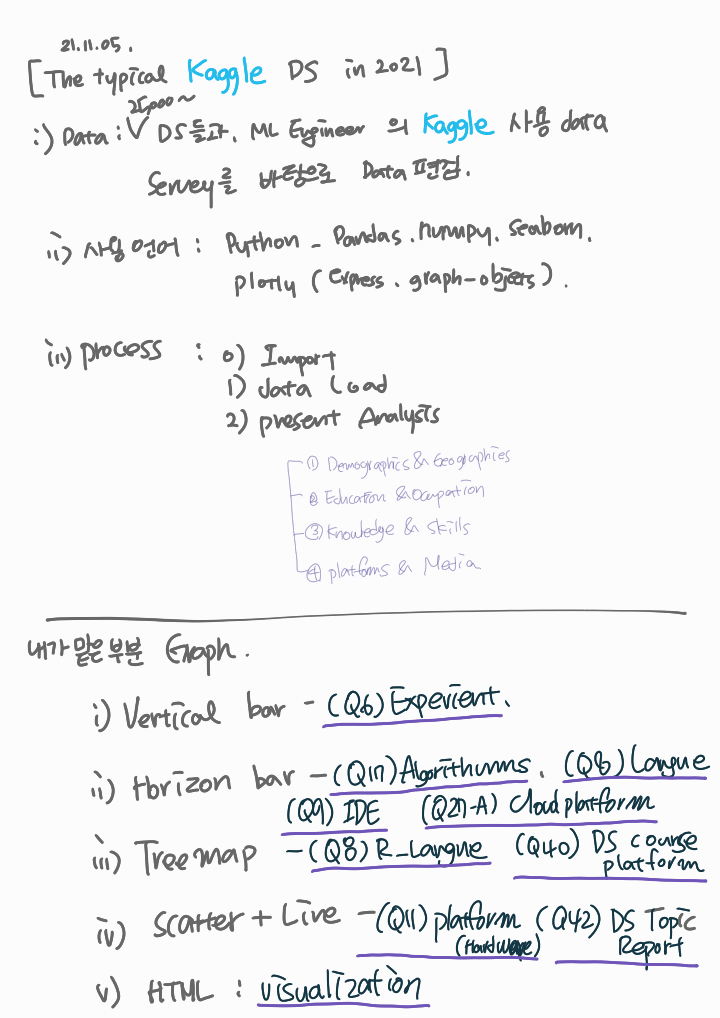 21.11.05.
[The typical Kaggle DS in 2021]
25,000~
i) Data : V DS들과, ML Engineer 의 Kaggle 사용 data
Servey를 바탕으로 Data 편집.
ii) 사용 언어 : Python - Pandas, numpy, seaborn,
plotly (express, graph-objects).
iii) process : 0) Import
1) data Load
2) present Analysis
① Demographics & Geographies
② Education & Ocupation
③ Knowledge & skills
④ platforms & Media
내가 맡은 부분 Graph.
i) Vertical bar - (Q6) Experient.
ii) Horizon bar - (Q17) Algorithmms, (Q8) Langue
(Q9) IDE (Q27-A) Cloud platform
iii) Treemap - (Q8) R_Langue (Q40) DS course
platform
iv) Scatter + Live - (Q11) platform (Q42) DS Topic
(Hardware) Report
v) HTML : visualization